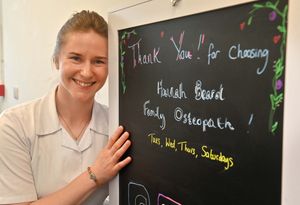 Thank You!! for Choosing
Hannah Beard
Family Osteopath!
Tues, Wed, Thurs, Saturdays